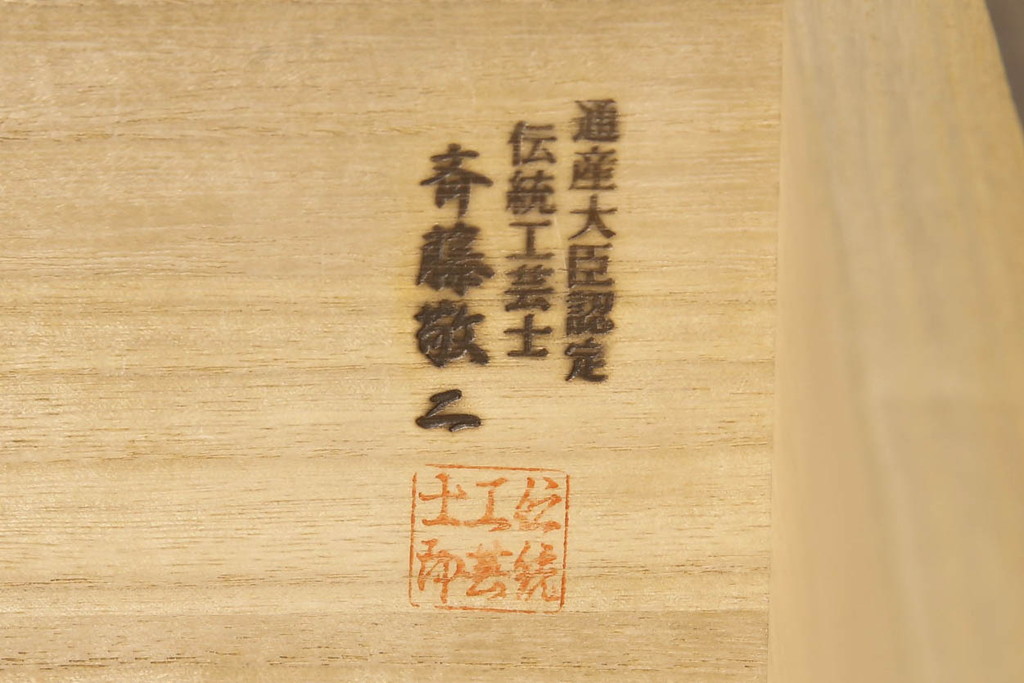 通産大臣認定
伝統工芸士
斉藤敬二
伝統
工芸
士印